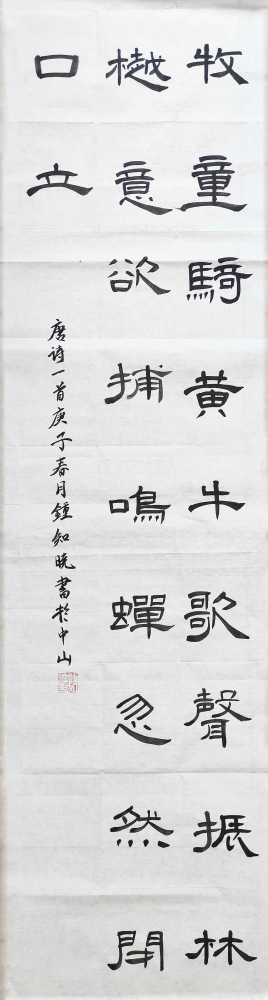 牧童騎黄牛歌聲振林
樾意欲捕鳴蟬忽然閉
口立
唐詩一首庚子春月鍾知晓書於中山